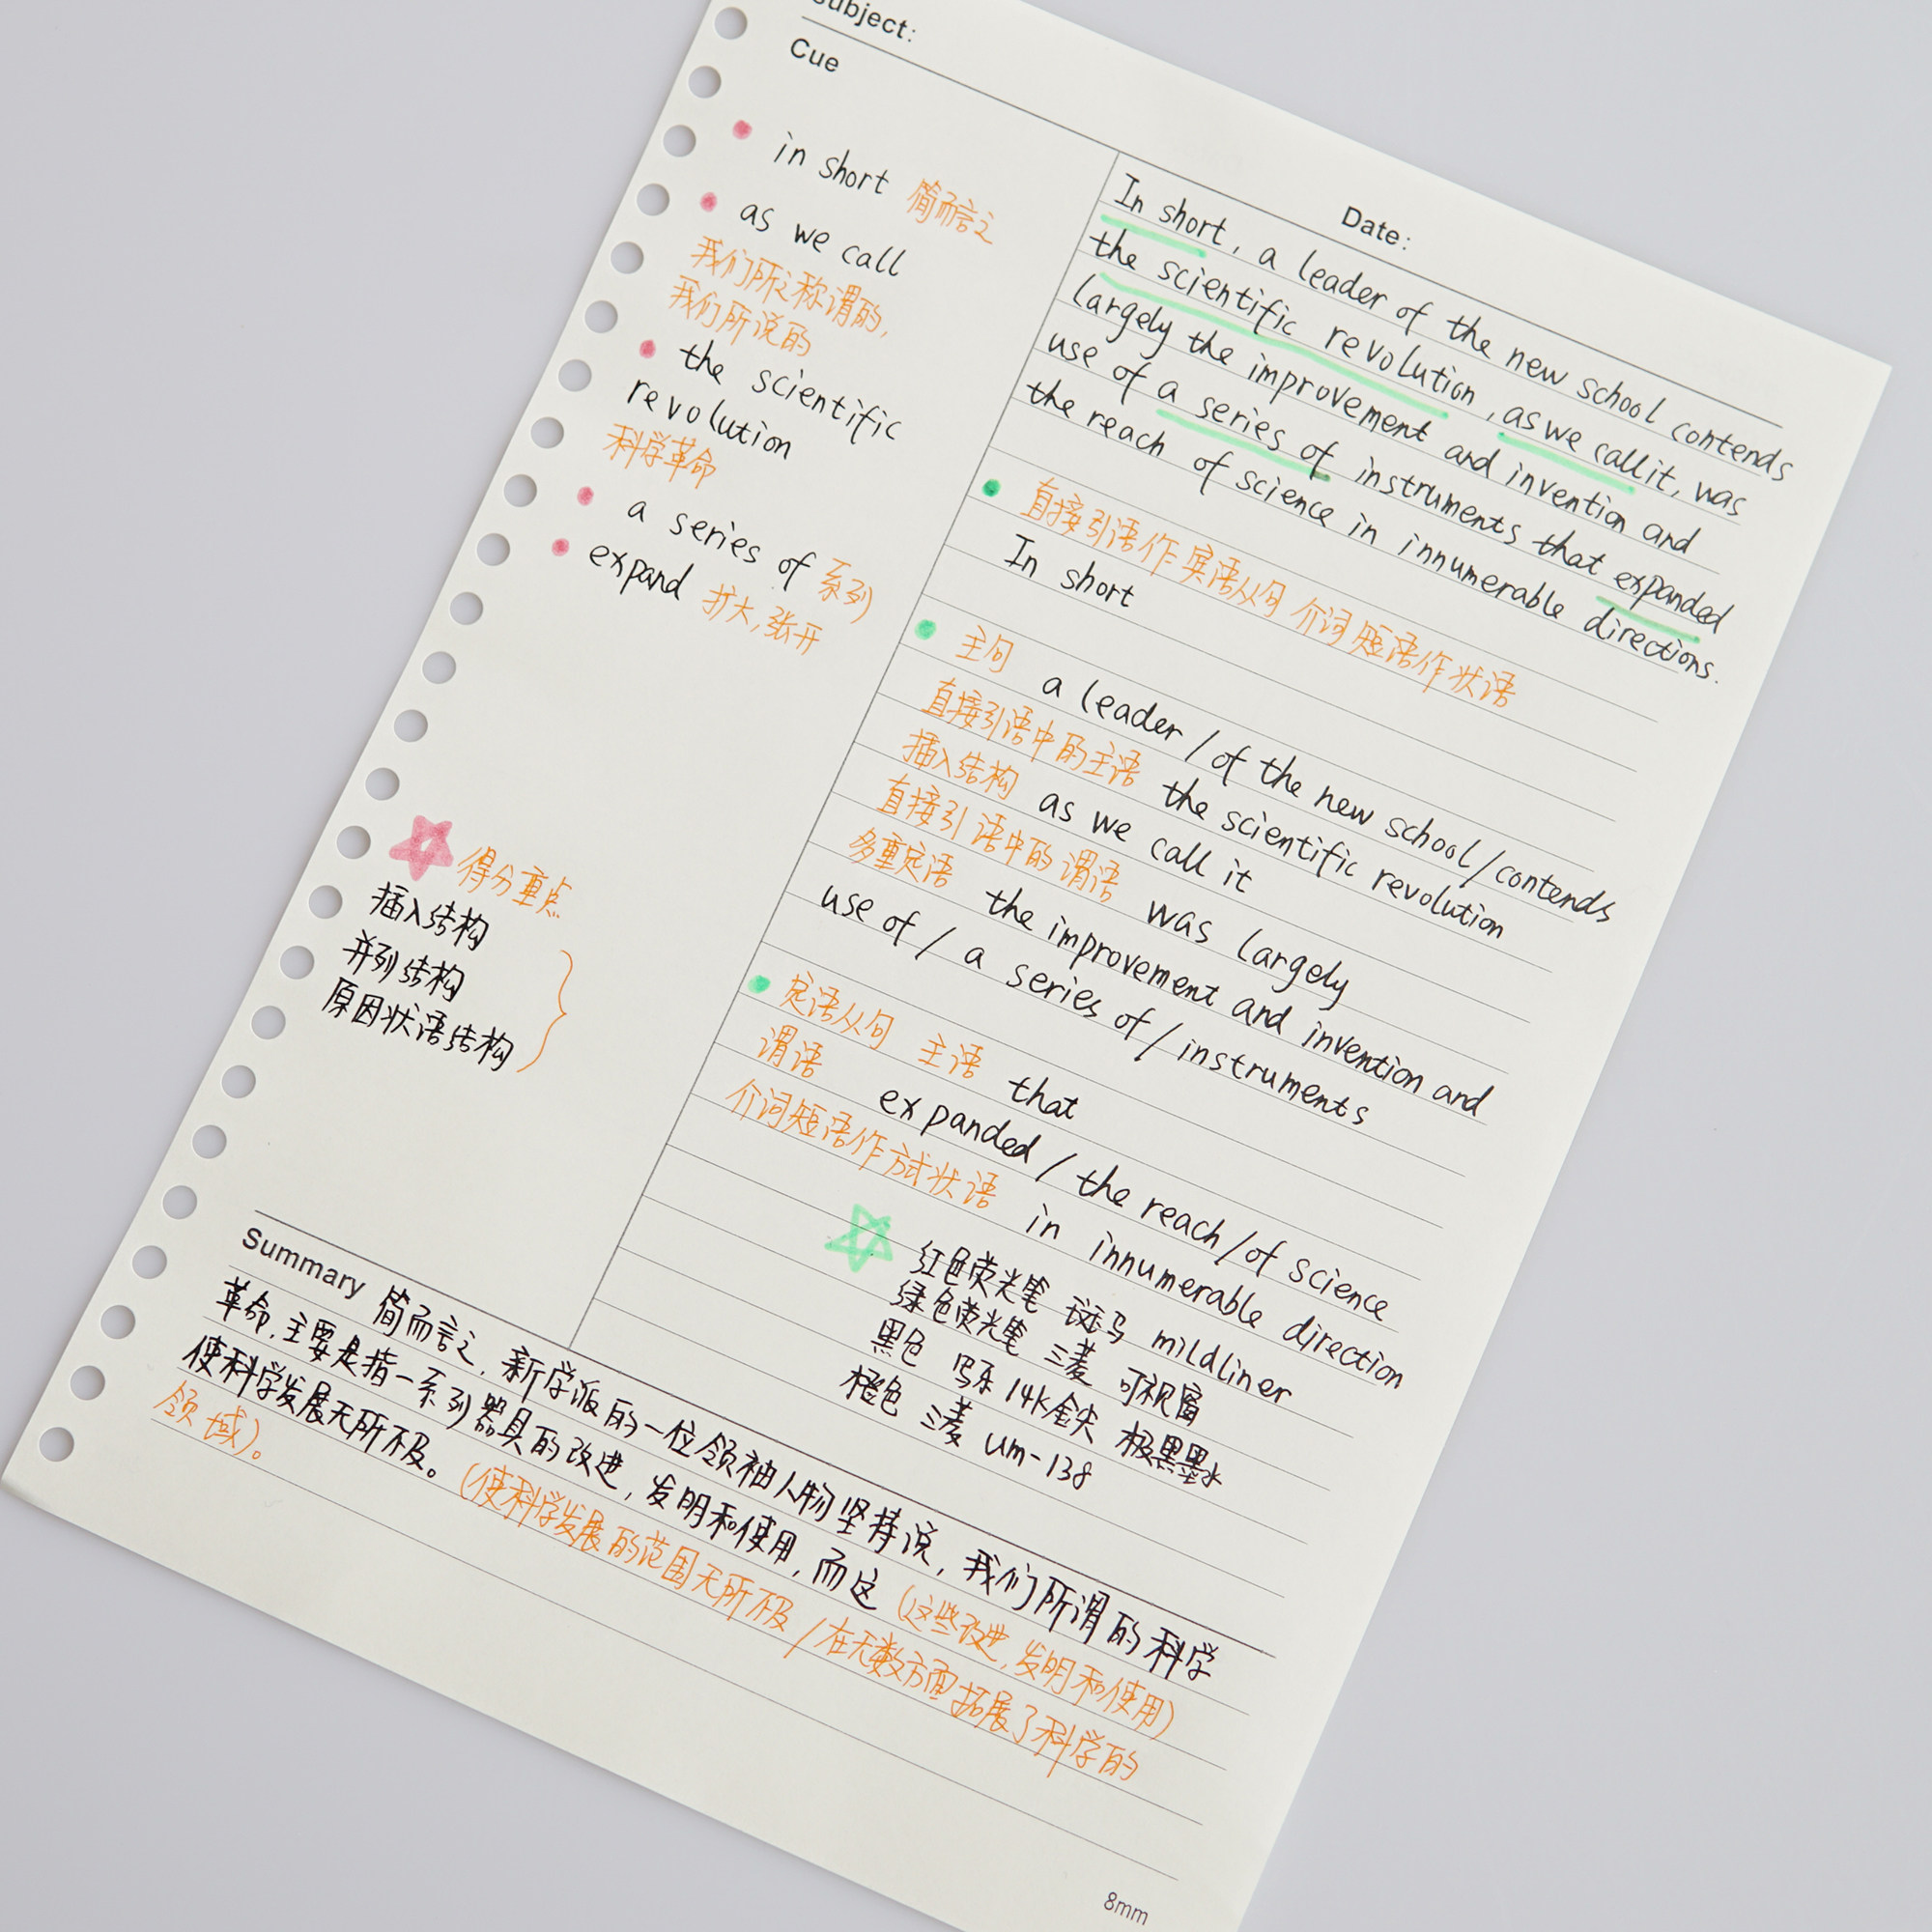 Subject:
Cue
in short 简而言之
as we call
我们所之称谓的,
我们所说的
the scientific
revolution
科学革命
a series of 系列
expand 扩大,张开
得分重点
插入结构
并列结构
原因状语结构
Date:
In short, a leader of the new school contends
the scientific revolution, as we call it, was
largely the improvement and invention and
use of a series of instruments that expanded
the reach of science in innumerable directions.
直接引语作宾语从句 介词短语作状语
In short
主句 a leader / of the new school / contends
直接引语中的主语 the scientific revolution
插入结构 as we call it
直接引语中的谓语 was largely
多重定语 the improvement and invention and
use of / a series of / instruments
定语从句 主语 that
谓语 expanded / the reach / of science
介词短语作方式状语 in innumerable direction
红色荧光笔 斑马 mildliner
绿色荧光笔 三菱 可视窗
黑色 写乐 14k金尖 极黑墨水
橙色 三菱 um-138
Summary 简而言之, 新学派的一位领袖人物坚持说, 我们所谓的科学
革命, 主要是指一系列器具的改进, 发明和使用, 而这 (这些改进, 发明和使用)
使科学发展无所不及。 (使科学发展的范围无所不及 / 在无数方面拓展了科学的
领域)。
8mm